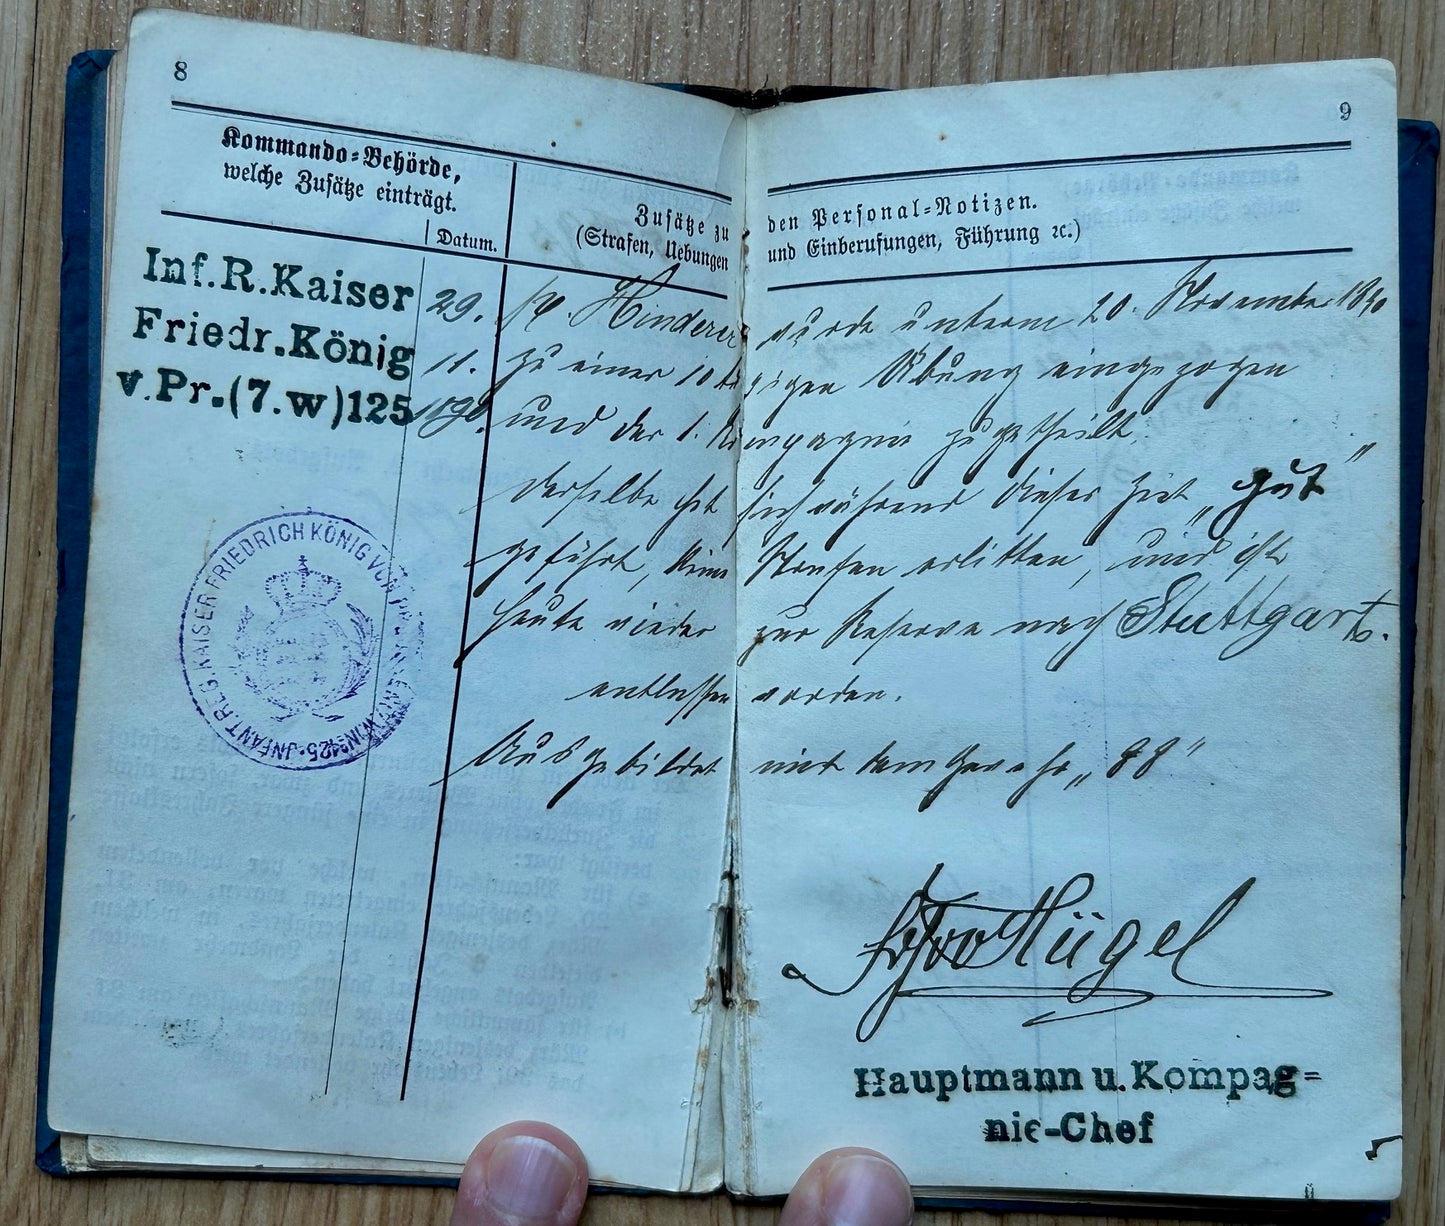 8
Kommando-Behörde,
welche Zusätze einträgt.
Datum.
Zusätze zu den Personal-Notizen.
(Strafen, Uebungen und Einberufungen, Führung ꝛc.)
9
Inf.R.Kaiser
Friedr.König
v.Pr.(7.w)125
29.
11.
1890.
Hinderer wurde unterm 20. November 1890
zu einer 10 tägigen Übung eingezogen
und der 1. Kompagnie zugetheilt.
Derselbe hat sich während dieser Zeit „gut"
geführt, keine Strafen erlitten, und ist
heute wieder zur Reserve nach Stuttgart
entlassen worden.
Ausgebildet mit dem Gewehr „88"
INFANT.REG. KAISER FRIEDRICH KÖNIG VON PREUSSEN (7.W.) No 125.
Hügel
Hauptmann u. Kompag=
nie-Chef